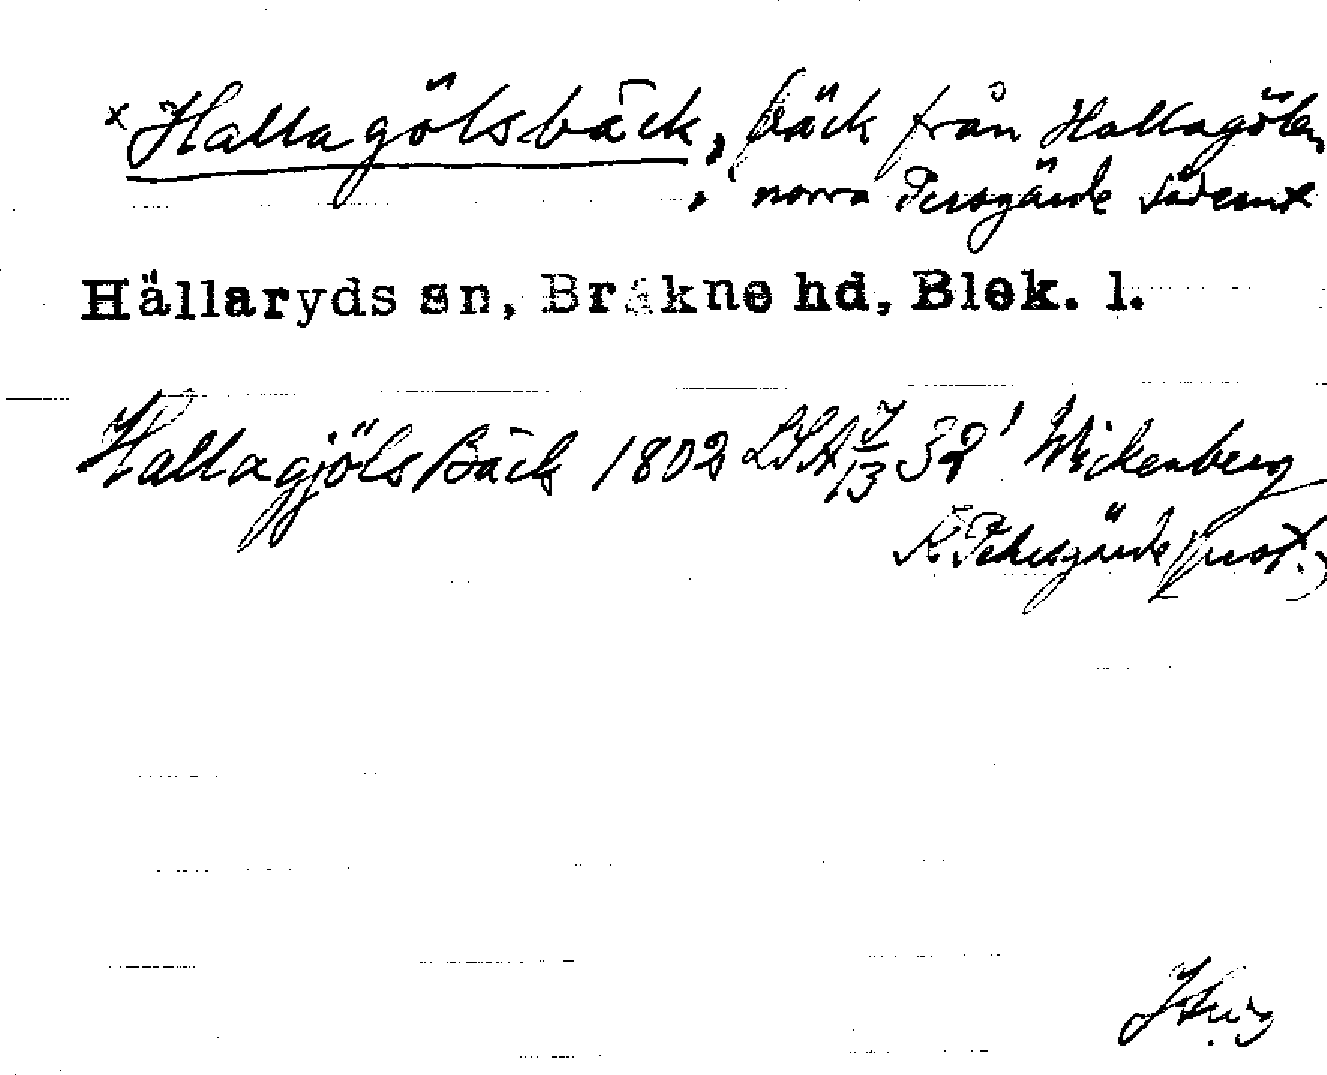 x Hallagölsbäck, bäck från Hallagölen
, norra Persgärde söderut
Hällaryds sn, Bräkne hd, Blek. l.
Hallagjöls Bäck 1802 LSA 7/13 32' Wickenberg
K Pehrsgärde (prot.)